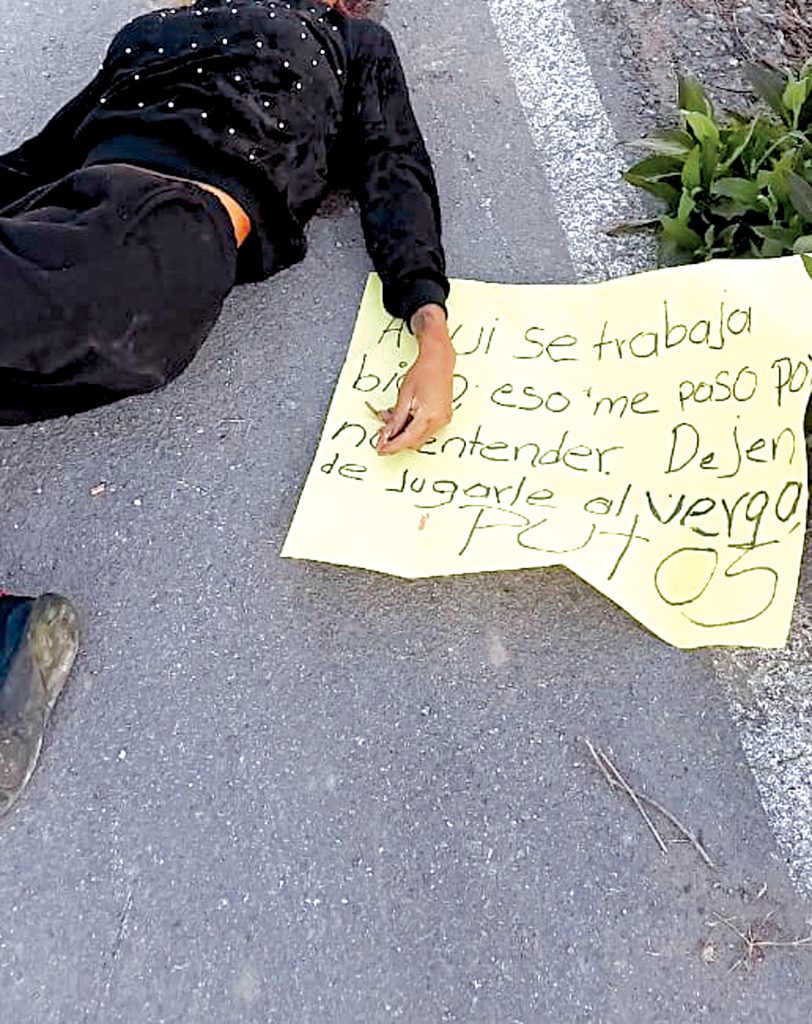 Aqui se trabaja
bien, eso me paso por
no entender. Dejen
de jugarle al verga,
PUtOS